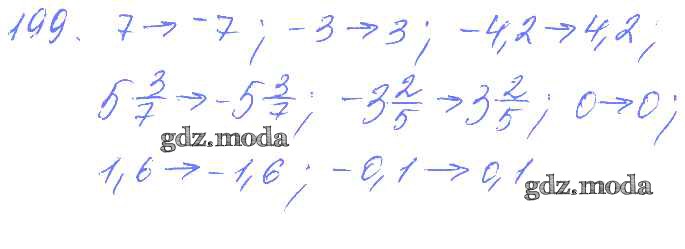 199. 7 → -7; -3 → 3; -4,2 → 4,2;
5 3/7 → -5 3/7; -3 2/5 → 3 2/5; 0 → 0;
gdz.moda
1,6 → -1,6; -0,1 → 0,1
gdz.moda